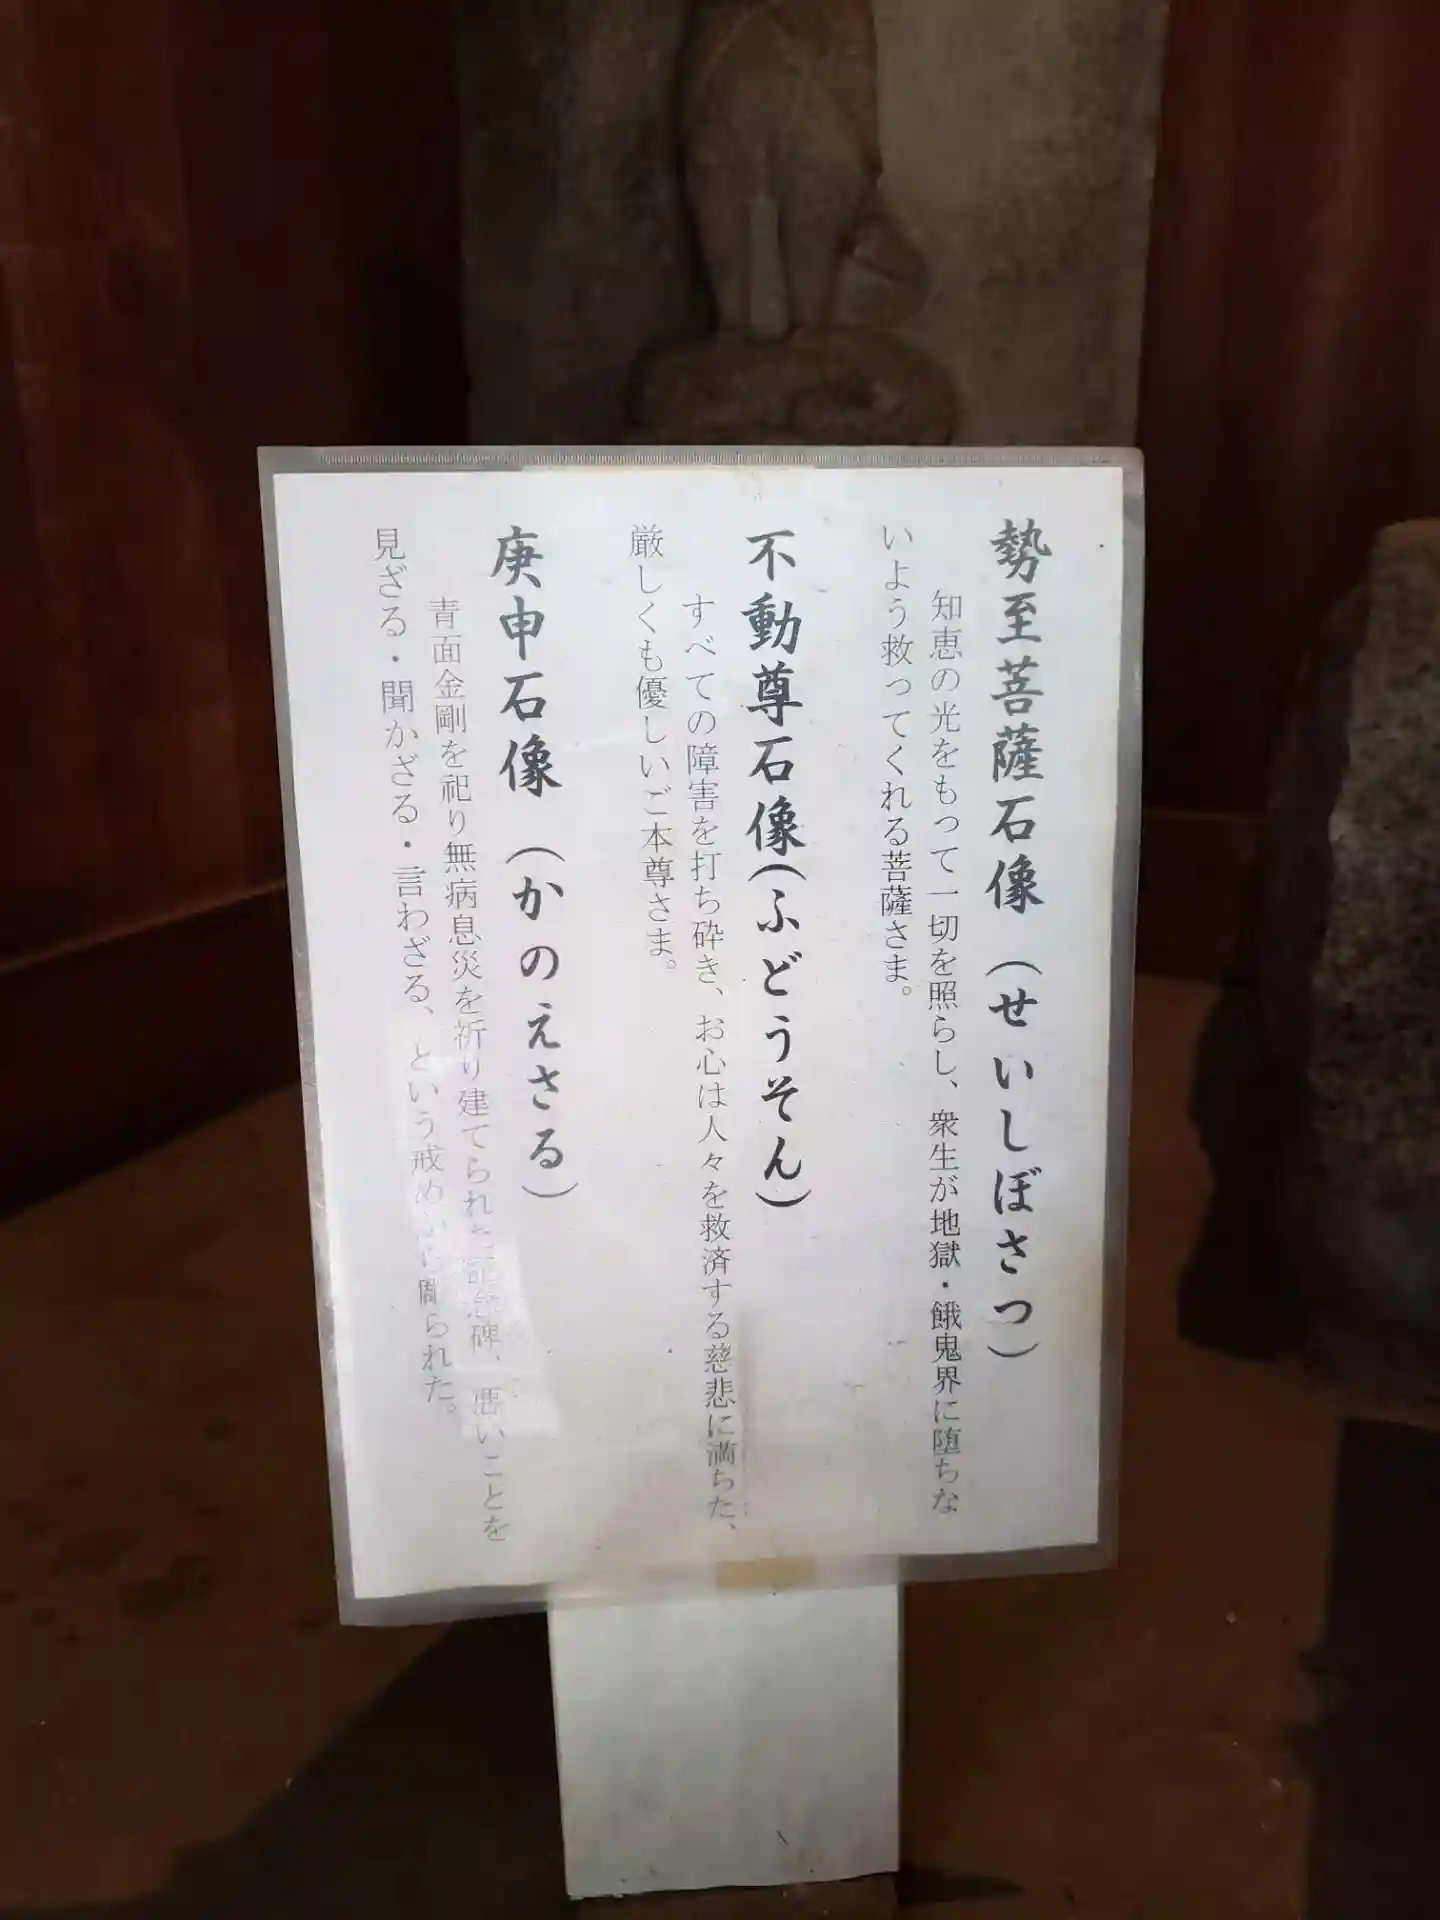 勢至菩薩石像（せいしぼさつ）
知恵の光をもって一切を照らし、衆生が地獄・餓鬼界に堕ちな
いよう救ってくれる菩薩さま。
不動尊石像（ふどうそん）
すべての障害を打ち砕き、お心は人々を救済する慈悲に満ちた、
厳しくも優しいご本尊さま。
庚申石像（かのえさる）
青面金剛を祀り無病息災を祈り建てられた記念碑、悪いことを
見ざる・聞かざる・言わざる、という戒めから彫られた。